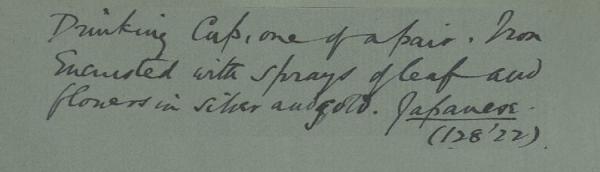 Drinking Cup, one of a pair. Iron
Encrusted with sprays of leaf and
flowers in silver and gold. Japanese.
(128'22)